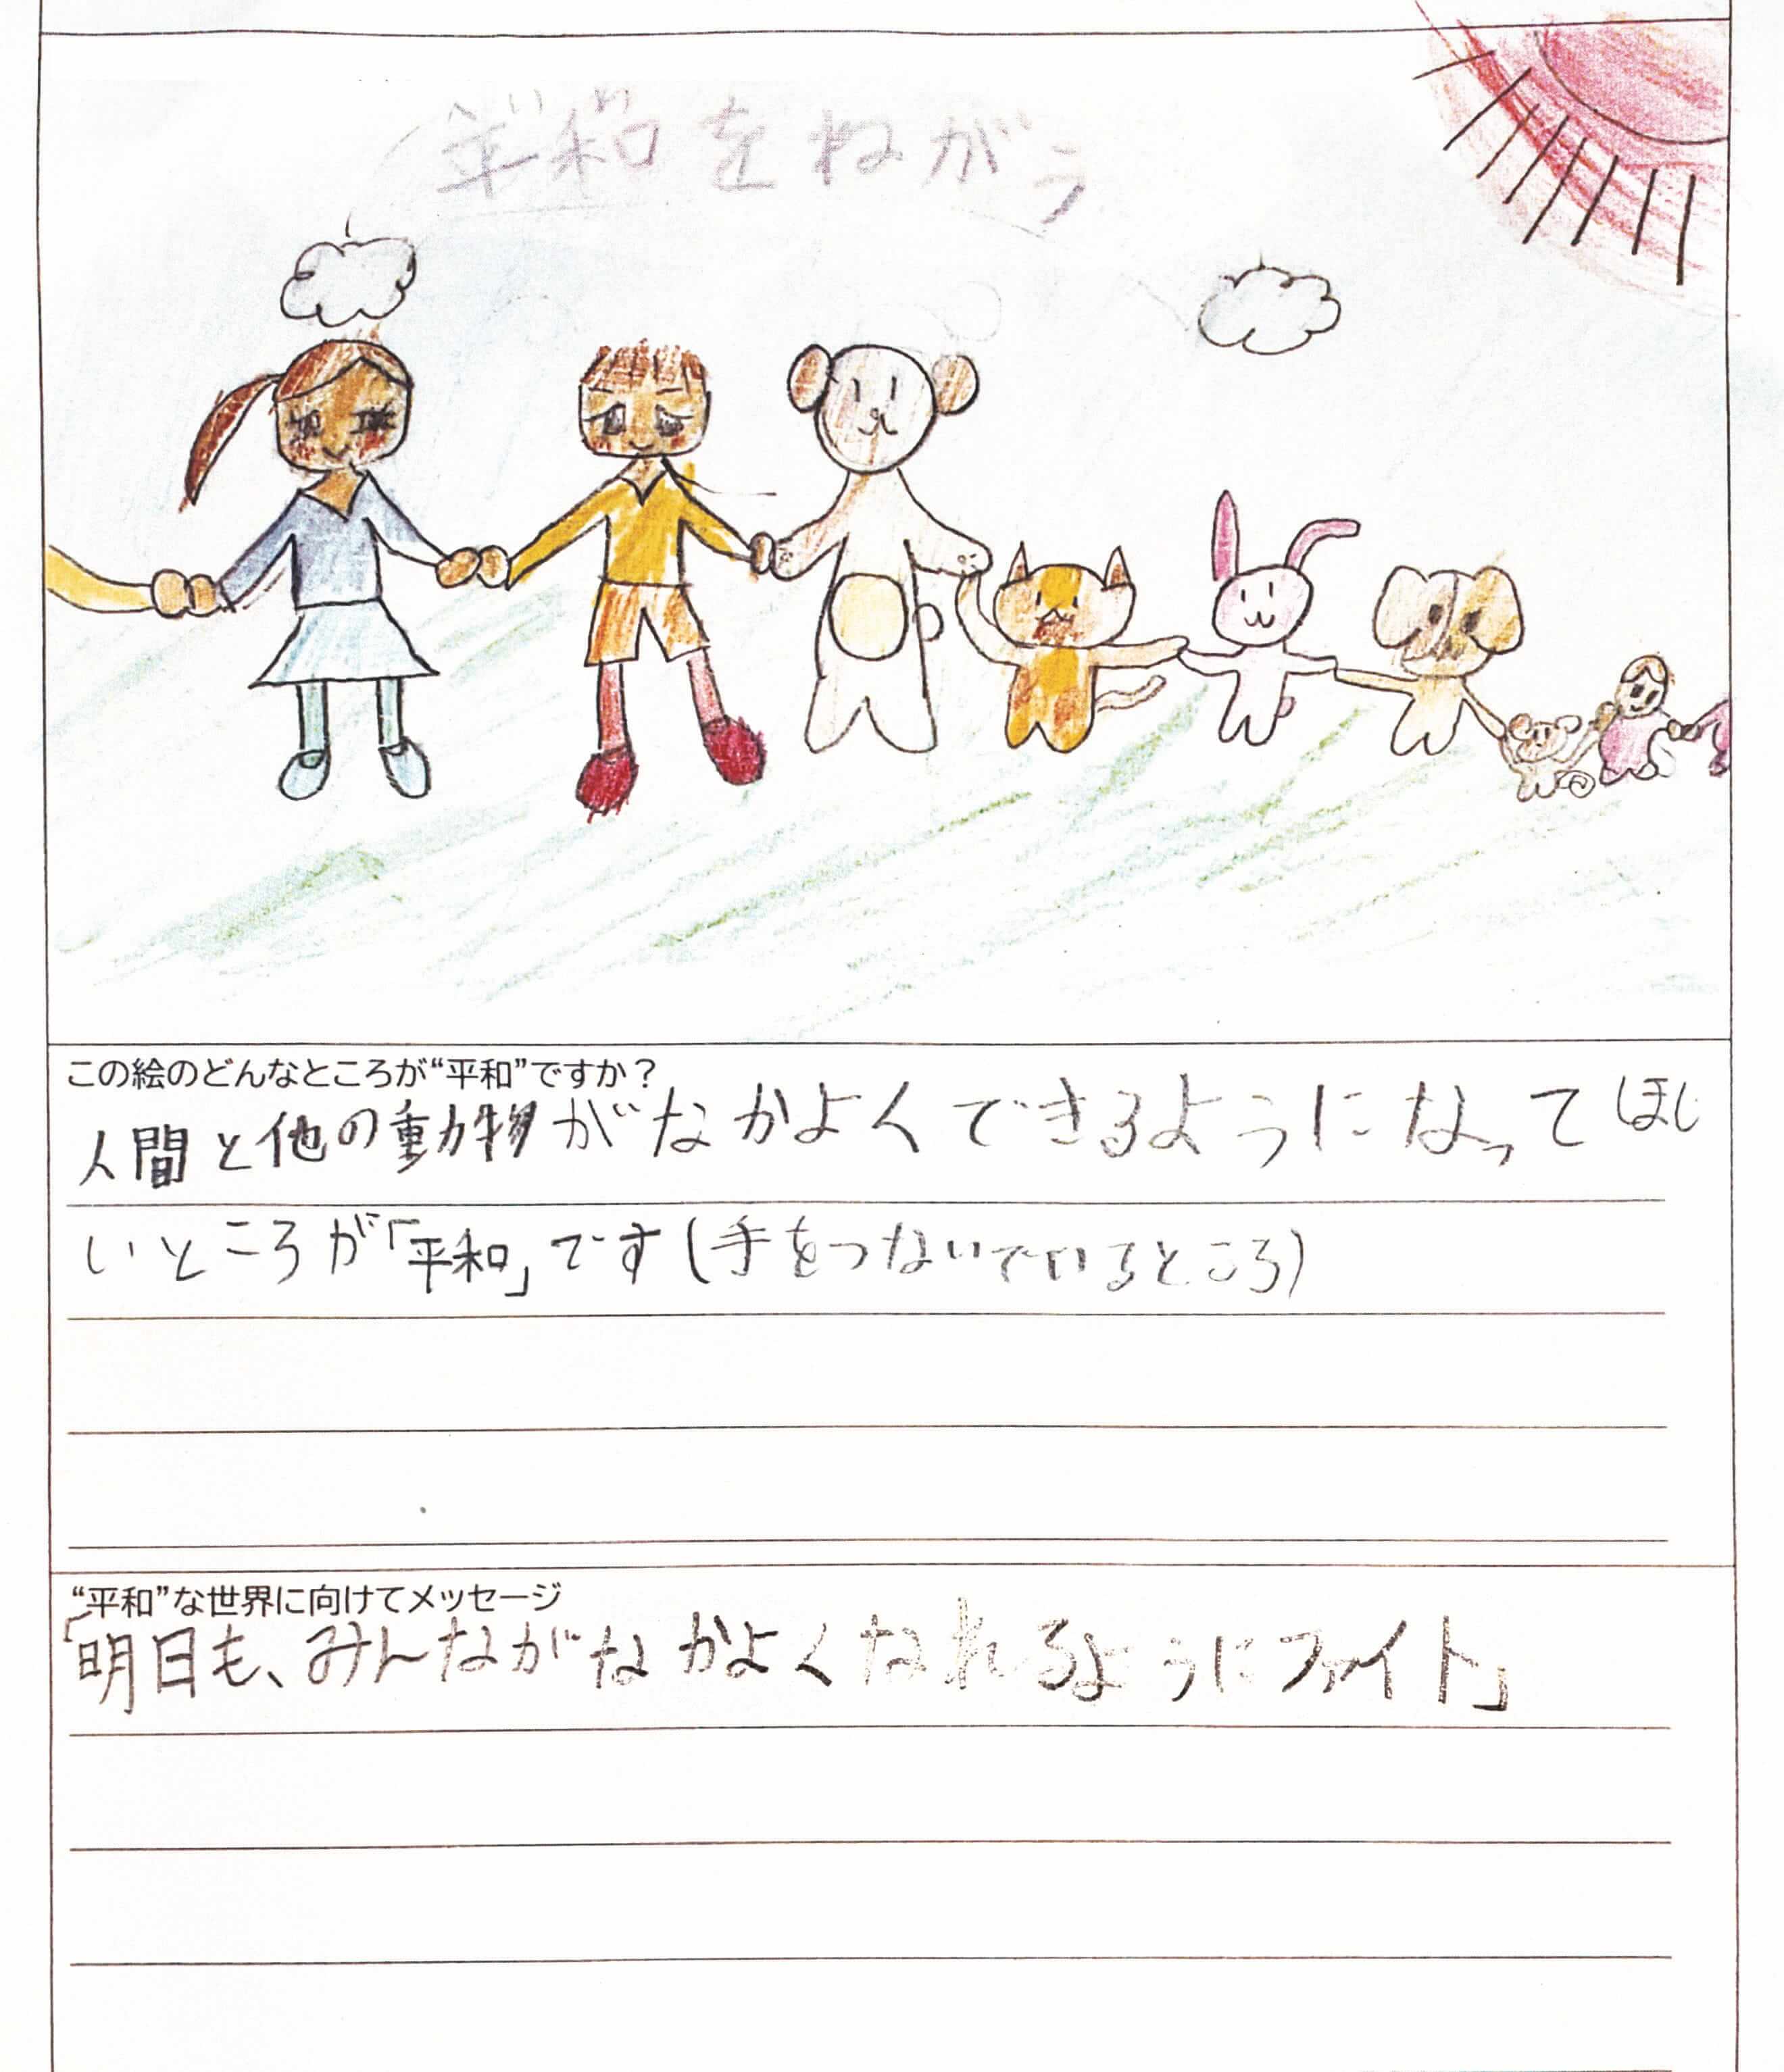 平和をねがう
この絵のどんなところが“平和”ですか？
人間と他の動物がなかよくできるようになってほし
いところが「平和」です(手をつないでいるところ)
“平和”な世界に向けてメッセージ
「明日も、みんながなかよくなれるようにファイト」